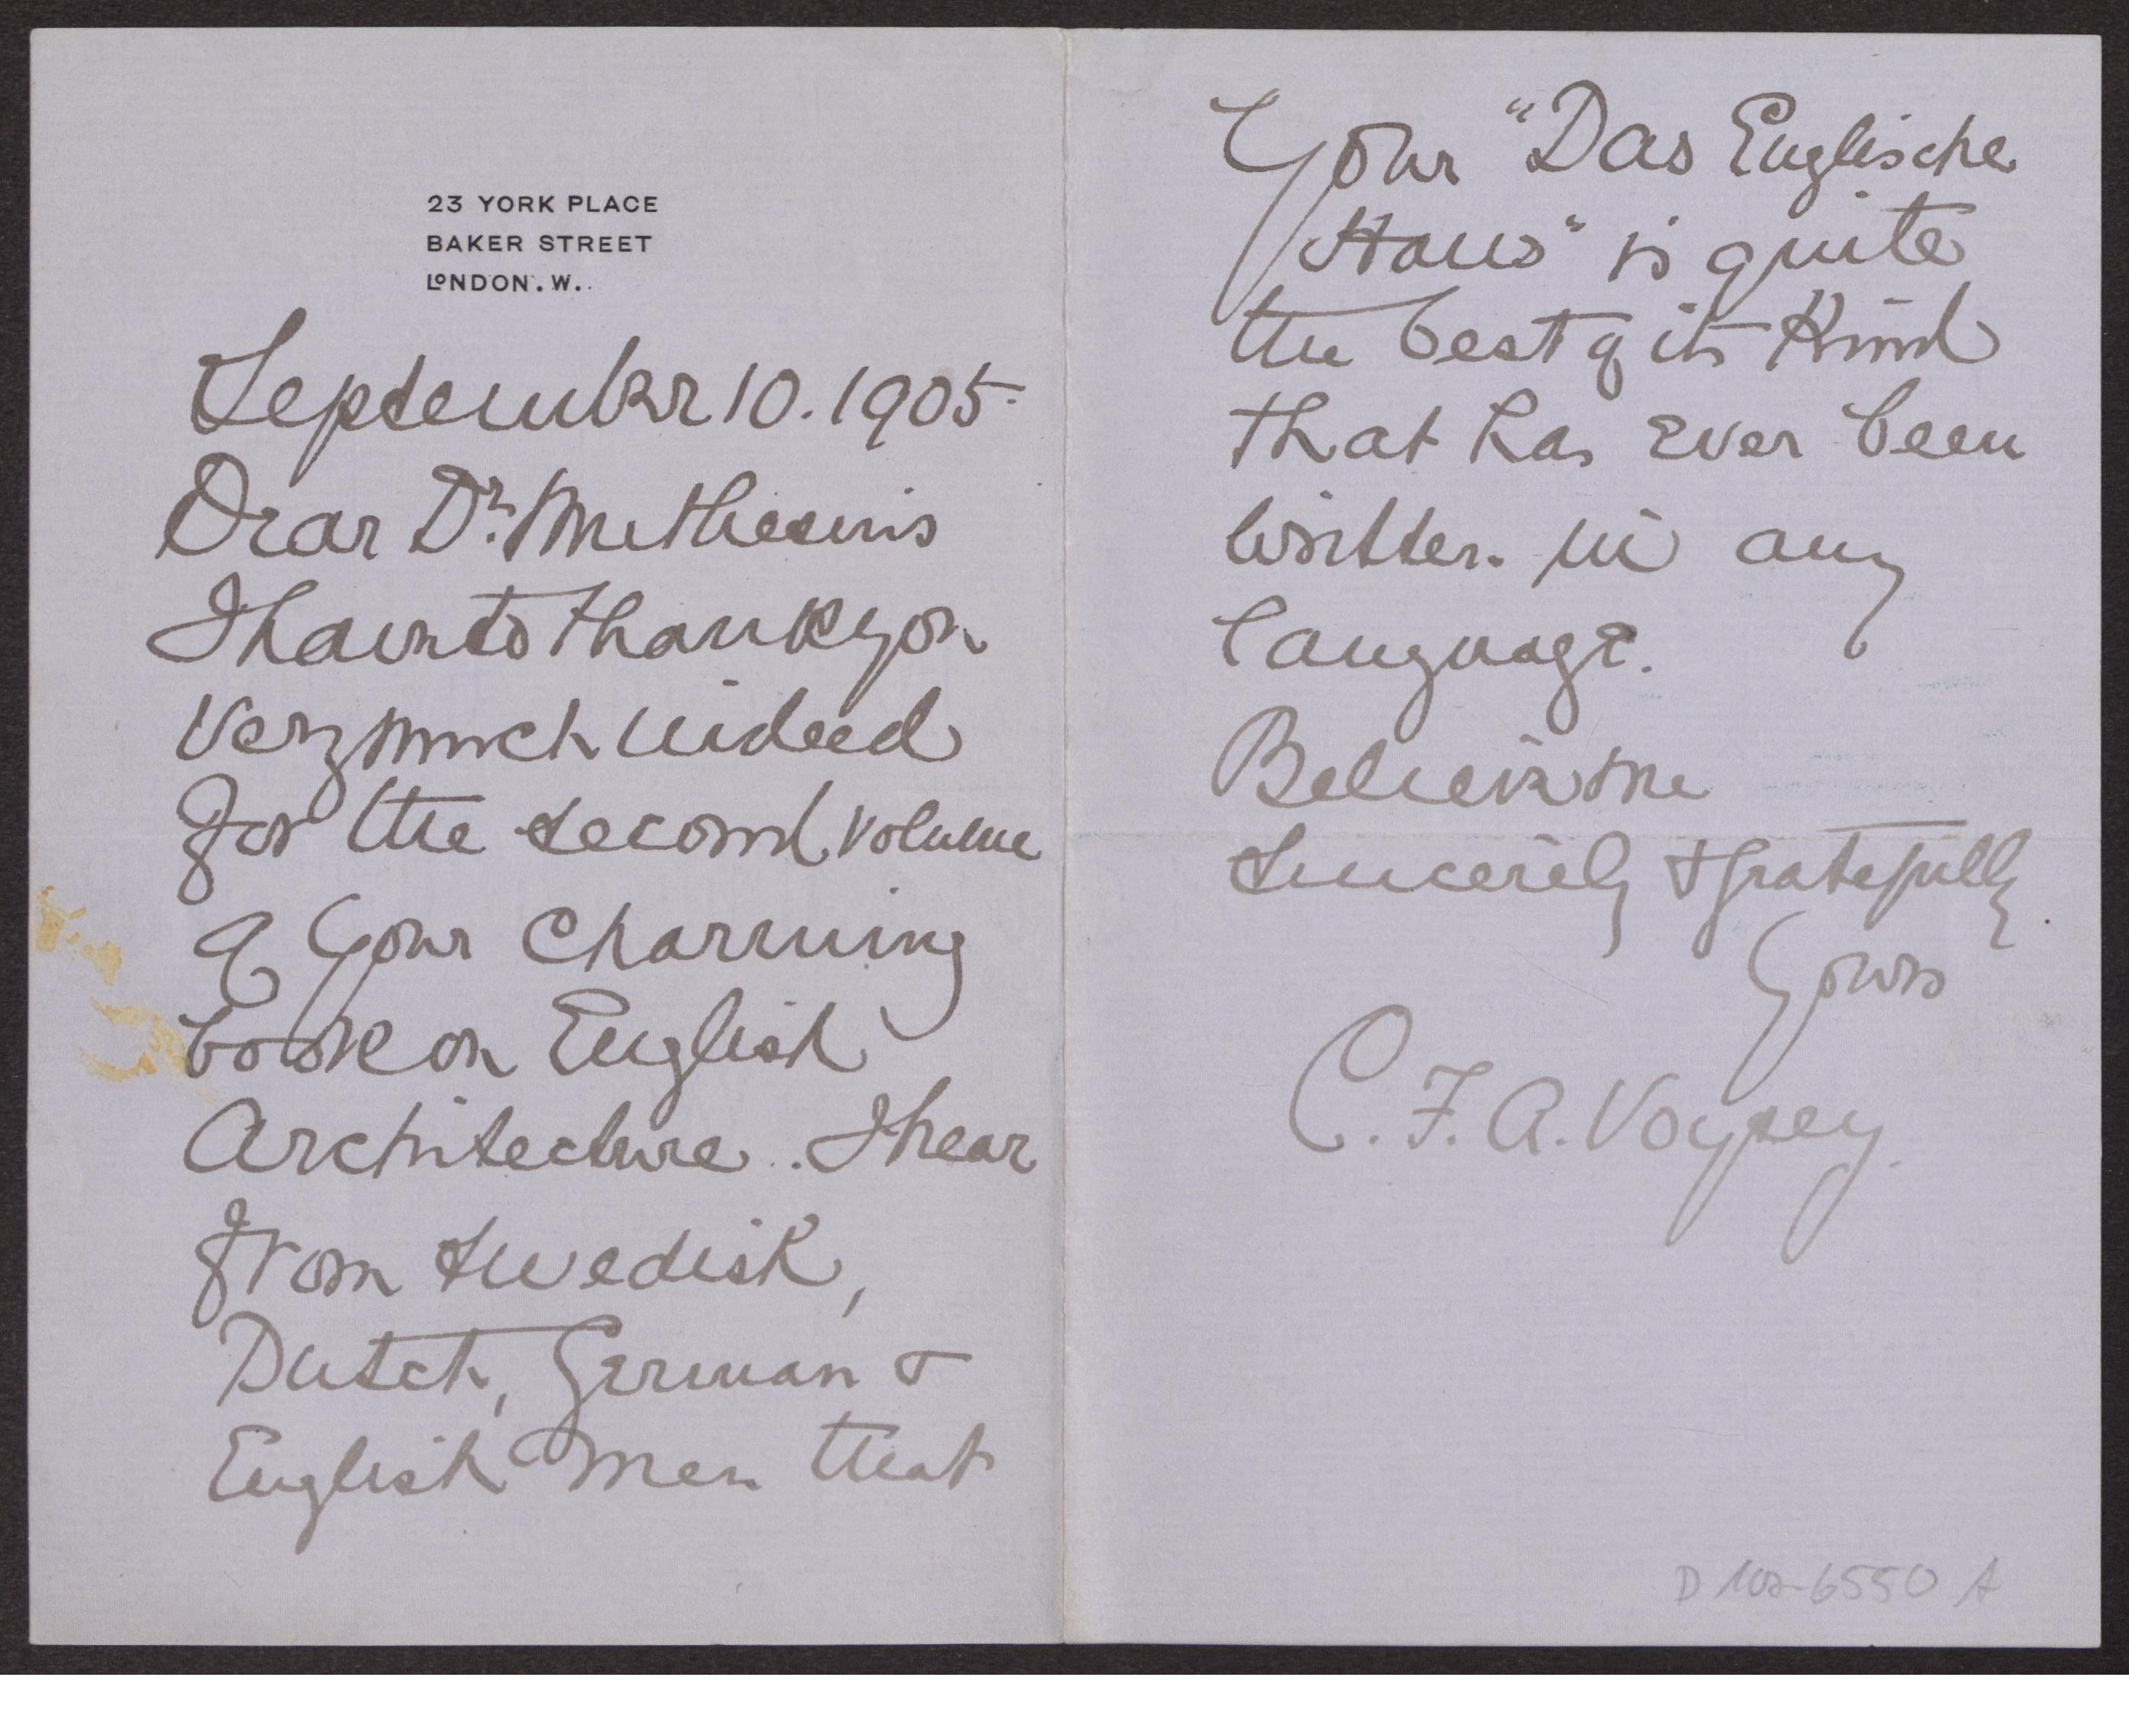 23 YORK PLACE
BAKER STREET
LONDON. W..
September 10. 1905.
Dear Dr. Muthesius
I have to thank you
very much indeed
for the second volume
of your charming
book on English
Architecture. I hear
from Swedish,
Dutch, German &
English men that
your "Das Englische
Haus" is quite
the best of its kind
that has ever been
written in any
language.
Believe me
Sincerely & gratefully
yours
C. F. A. Voysey.
D 102-6550 A